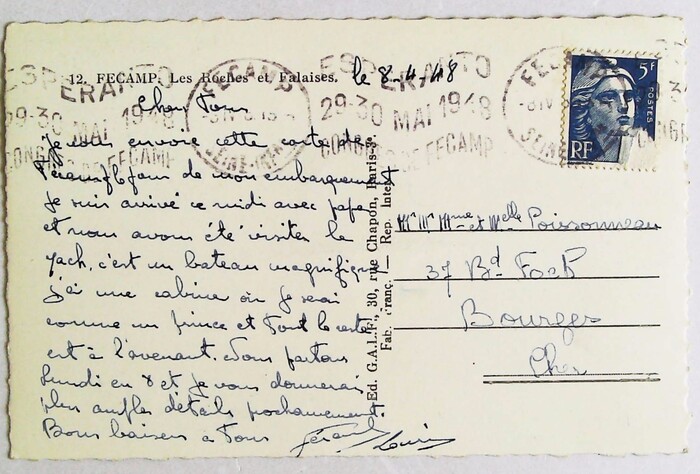 12. FECAMP. Les Roches et Falaises.
le 8-4-48
ESPERANTO
29-30 MAI 1948
CONGRES DE FECAMP
FECAMP
SEINE-INFRE
ESPERANTO
29-30 MAI 1948
CONGRES DE FECAMP
FECAMP
SEINE
5F
POSTES
RF
Chers Tous
Je vous envoie cette carte de
Fécamp de mon embarquement
Je suis arrivé ce midi avec papa
et nous avons été visiter le
Yach, c'est un bateau magnifique
j'ai une cabine où je serai
comme un prince et tout le reste
est à l'avenant. Nous partons
Lundi en 8 et je vous donnerai
plus amples détails prochainement.
Bons baisers à Tous
Gérard
Louis
Ed. G.A.L.F., 30, rue Chapon, Paris-3e.
Fab. Franç. — Rep. Inter.
Mr Mme et Melle Poissonneau
37 Bd Foch
Bourges
Cher